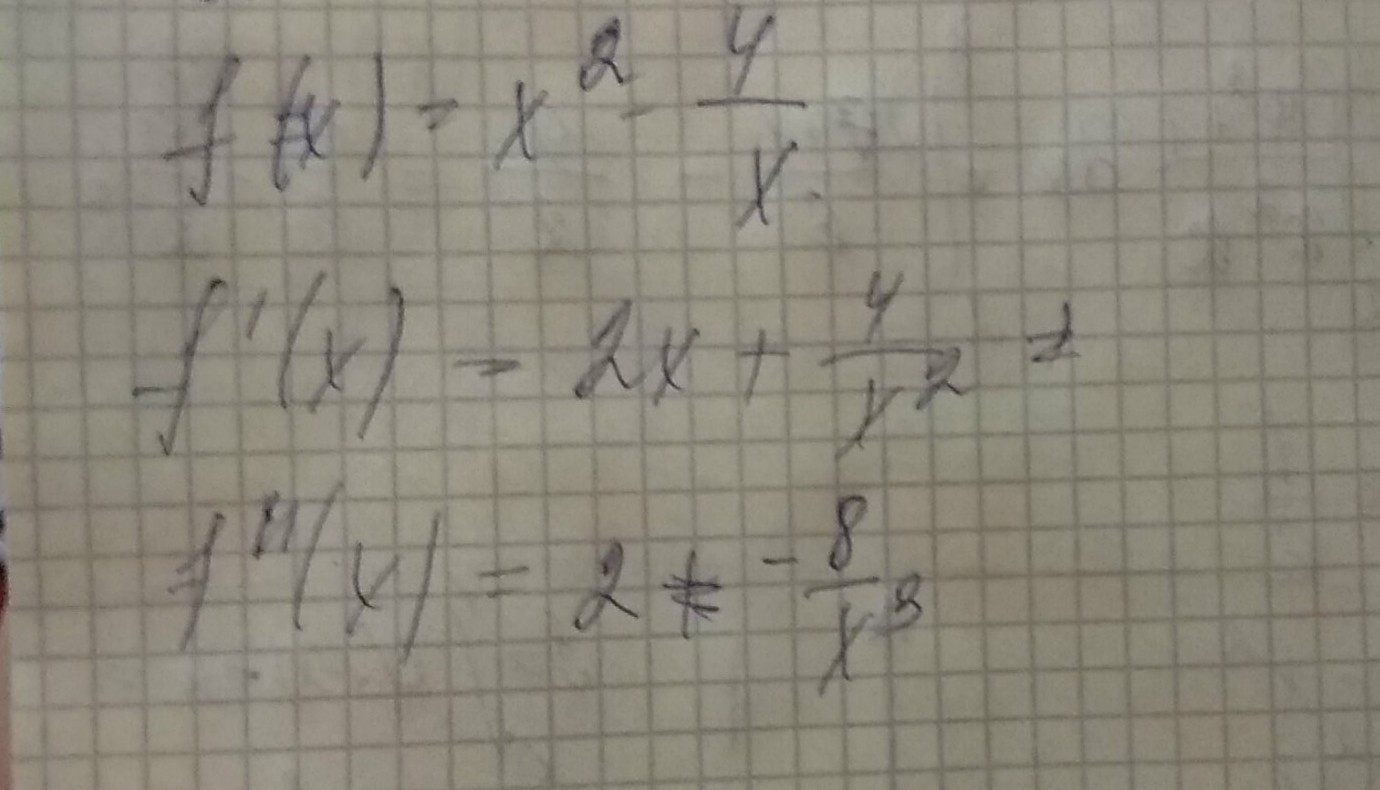 f(x) = x² - 4/x
f'(x) = 2x + 4/x² =
f''(x) = 2 - 8/x³